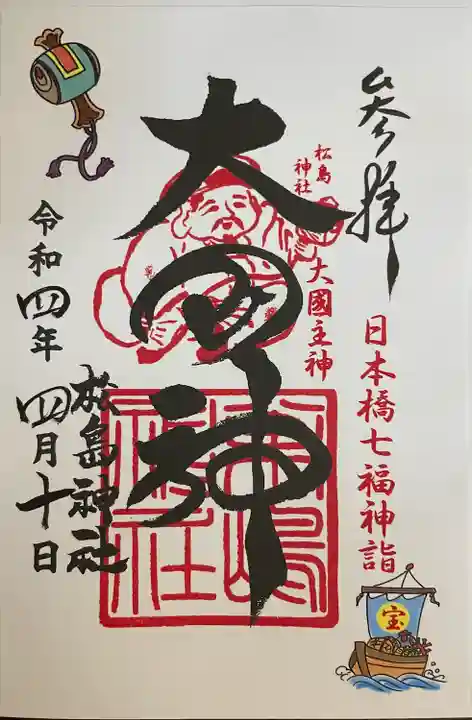 参拝
日本橋七福神詣
宝
松島
神社
大國主神
大黒神
松島神社
松嶋
神社
令和四年
四月十日